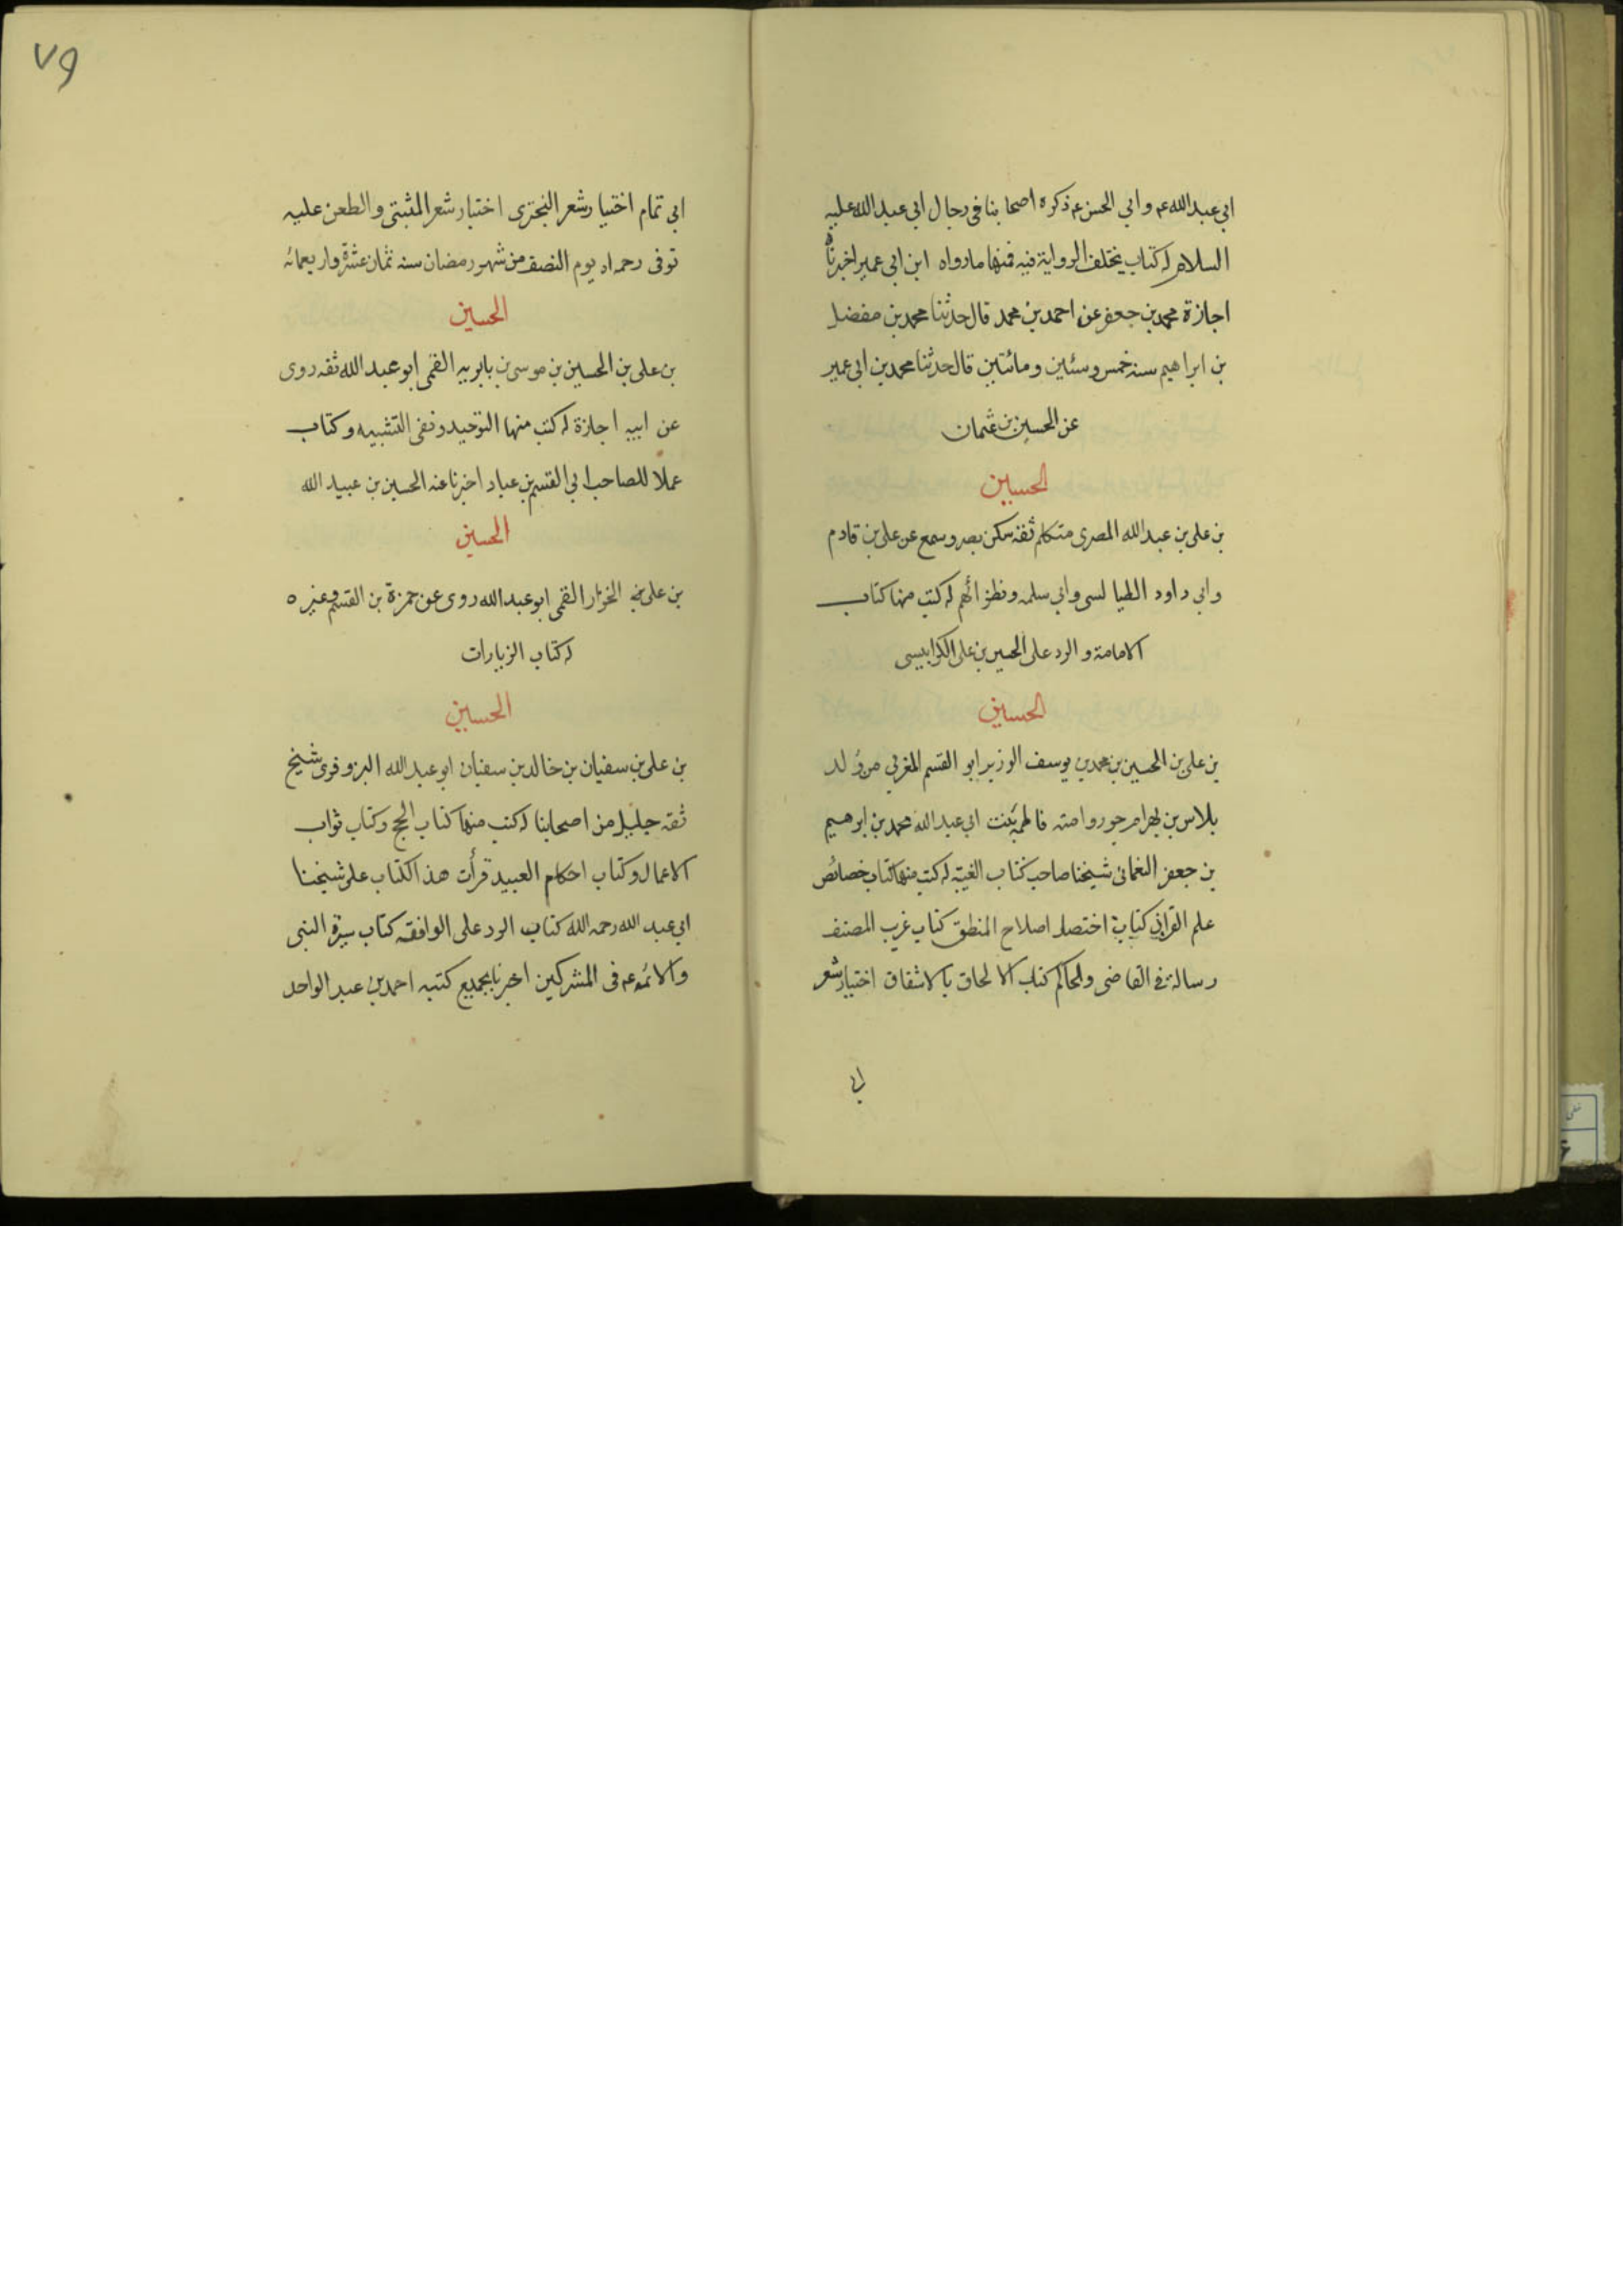 ابي عبدالله ع وابي الحسن ع ذكره اصحابنا في رجال ابي عبدالله عليه
السلام له كتاب يختلف الرواية فيه فمنها مارواه ابن ابي عمير اخبرنا
اجازة محمد بن جعفر عن احمد بن محمد قال حدثنا محمد بن مفضل
بن ابراهيم سنه خمس وستين ومائتين قال حدثنا محمد بن ابي عمير
عن الحسين بن عثمان
الحسين
بن علي بن عبدالله المصرى متكلم ثقه سكن بصر وسمع عن علي بن قادم
وابي داود الطيالسى وابي سلمه ونظرائهم له كتب منها كتاب
الامامة والرد على الحسين بن على الكرابيسى
الحسين
بن علي بن الحسين بن محمد بن يوسف الوزير ابو القسم المغربي من ولد
بلاس بن بهرام جور وامته فاطمه بنت ابي عبدالله محمد بن ابرهيم
بن جعفر النعمانى شيخنا صاحب كتاب الغيبه له كتب منها كتاب خصائص
علم القران كتاب اختصار اصلاح المنطق كتاب غريب المصنف
رسالة في القاضى والحاكم كتاب الالحاق بالاشقاق اختيار شعر
ابي
٧٩
ابى تمام اختيار شعر البحترى اختيار شعر المتنبى والطعن عليه
توفى رحمه الله يوم النصف من شهر رمضان سنه ثمان عشرة واربعمائه
الحسين
بن على بن الحسين بن موسى بن بابويه القمى ابو عبدالله ثقه روى
عن ابيه اجازة له كتب منها التوحيد ونفى التشبيه وكتاب
عملا للصاحب ابي القسم بن عباد اخبرنا عنه الحسين بن عبيد الله
الحسين
بن على الخزاز القمى ابو عبدالله روى عن حمزة بن القسم وغيره
له كتاب الزيارات
الحسين
بن على بن سفيان بن خالد بن سفيان ابو عبدالله البزوفرى شيخ
ثقه جليل من اصحابنا له كتب منها كتاب الحج وكتاب ثواب
الاعمال وكتاب احكام العبيد قرأت هذا الكتاب على شيخنا
ابي عبدالله رحمه الله كتاب الرد على الواقفه كتاب سيرة النبى
والائمه ع فى المشركين اخبرنا بجميع كتبه احمد بن عبد الواحد